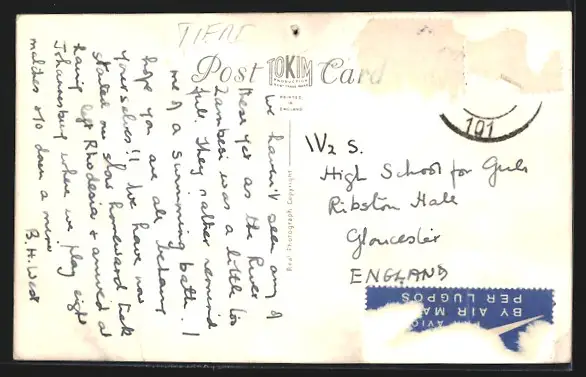 TIERE
Post TOKIM Card
PRODUCTION
PRINTED
IN
ENGLAND
Real Photograph Copyright
101
W2 S.
High School for Girls
Ribston Hall
Gloucester
ENGLAND
BY AIR MAIL
PAR AVION
PER LUGPOS
We haven't seen any of
these yet as the River
Zambesi was a little too
full. They rather remind
me of a swimming bath. I
hope you are all behaving
yourselves!! We have now
started our slow homeward trek
having left Rhodesia & arrived at
Johannesburg where we play eight
matches & go down a mine
B.H. West